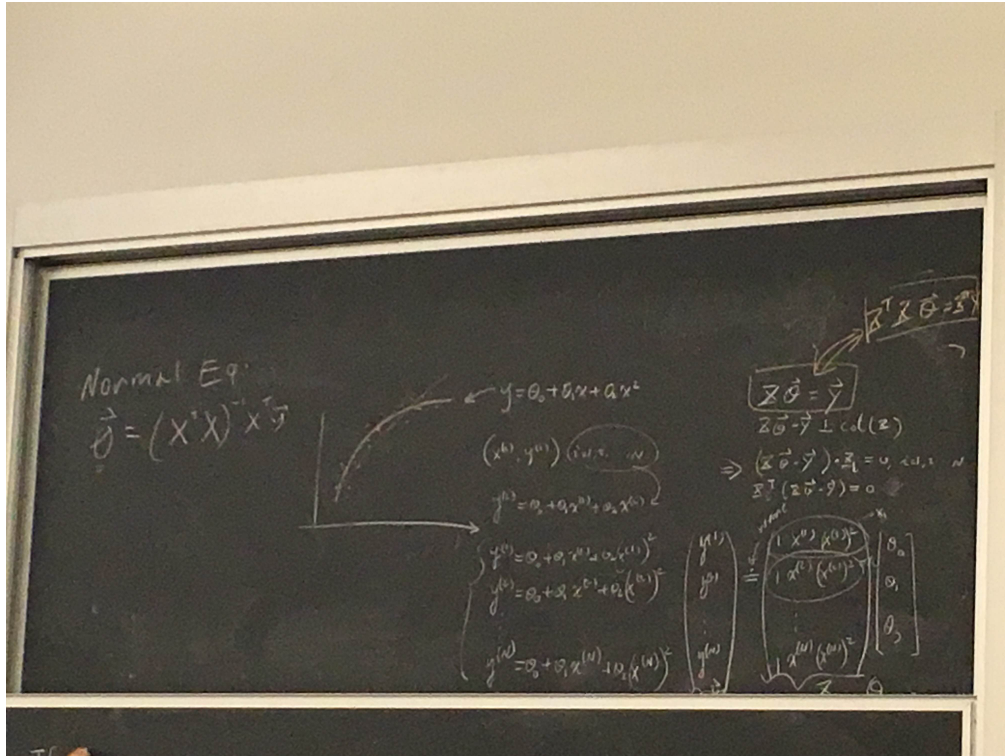 Normal Eq.
θ⃗ = (XᵀX)⁻¹Xᵀy⃗
y = θ₀ + θ₁x + θ₂x²
(x⁽ⁱ⁾, y⁽ⁱ⁾)
y⁽ⁱ⁾ = θ₀ + θ₁x⁽ⁱ⁾ + θ₂x⁽ⁱ⁾
y⁽¹⁾ = θ₀ + θ₁x⁽¹⁾ + θ₂(x⁽¹⁾)²
y⁽²⁾ = θ₀ + θ₁x⁽²⁾ + θ₂(x⁽²⁾)²
⋮
y⁽ᴺ⁾ = θ₀ + θ₁x⁽ᴺ⁾ + θ₂(x⁽ᴺ⁾)²
ZᵀZθ⃗ = Zᵀy⃗
Zθ⃗ = y⃗
Zθ⃗ - y⃗ ⊥ col(Z)
⇒ (Zθ⃗ - y⃗)·Zᵢ = 0,
Zᵀ(Zθ⃗ - y⃗) = 0
y⁽¹⁾ = 1 x⁽¹⁾ (x⁽¹⁾)² θ₀
y⁽²⁾ 1 x⁽²⁾ (x⁽²⁾)² θ₁
⋮ ⋮
y⁽ᴺ⁾ 1 x⁽ᴺ⁾ (x⁽ᴺ⁾)² θ₂
Z θ